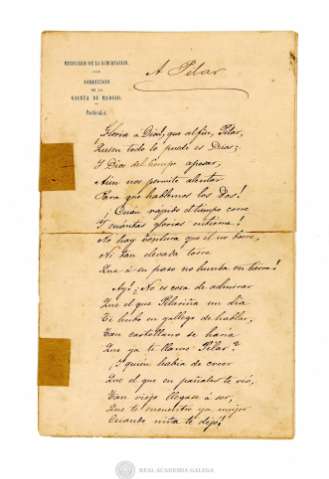 MINISTERIO DE LA GOBERNACION.
DIRECCION
DE LA
GACETA DE MADRID.
Particular.
A Pilar
¡Gloria a Dios!, que al fin, Pilar,
Quien todo lo puede es Dios;
Y Dios del tiempo a pesar,
Aún nos permite alentar
Para que hablemos los dos!
¡Cuán rapido el tiempo corre
Y cuántas glorias entierra!
No hay ventura que él no borre,
Ni tan elevada torre
Que á su paso no hunda en tierra!
Ay! ¿No es cosa de admirar
Que el que Piluriña un dia
Te hubo en gallego de hablar,
Tan castellano se haria
Que ya te llame Pilar?
¿Y quién habia de creer
Que el que en pañales te vió,
Tan viejo llegase á ser,
Que te encuentre ya mujer
Cuando niña te dejó?
REAL ACADEMIA GALEGA